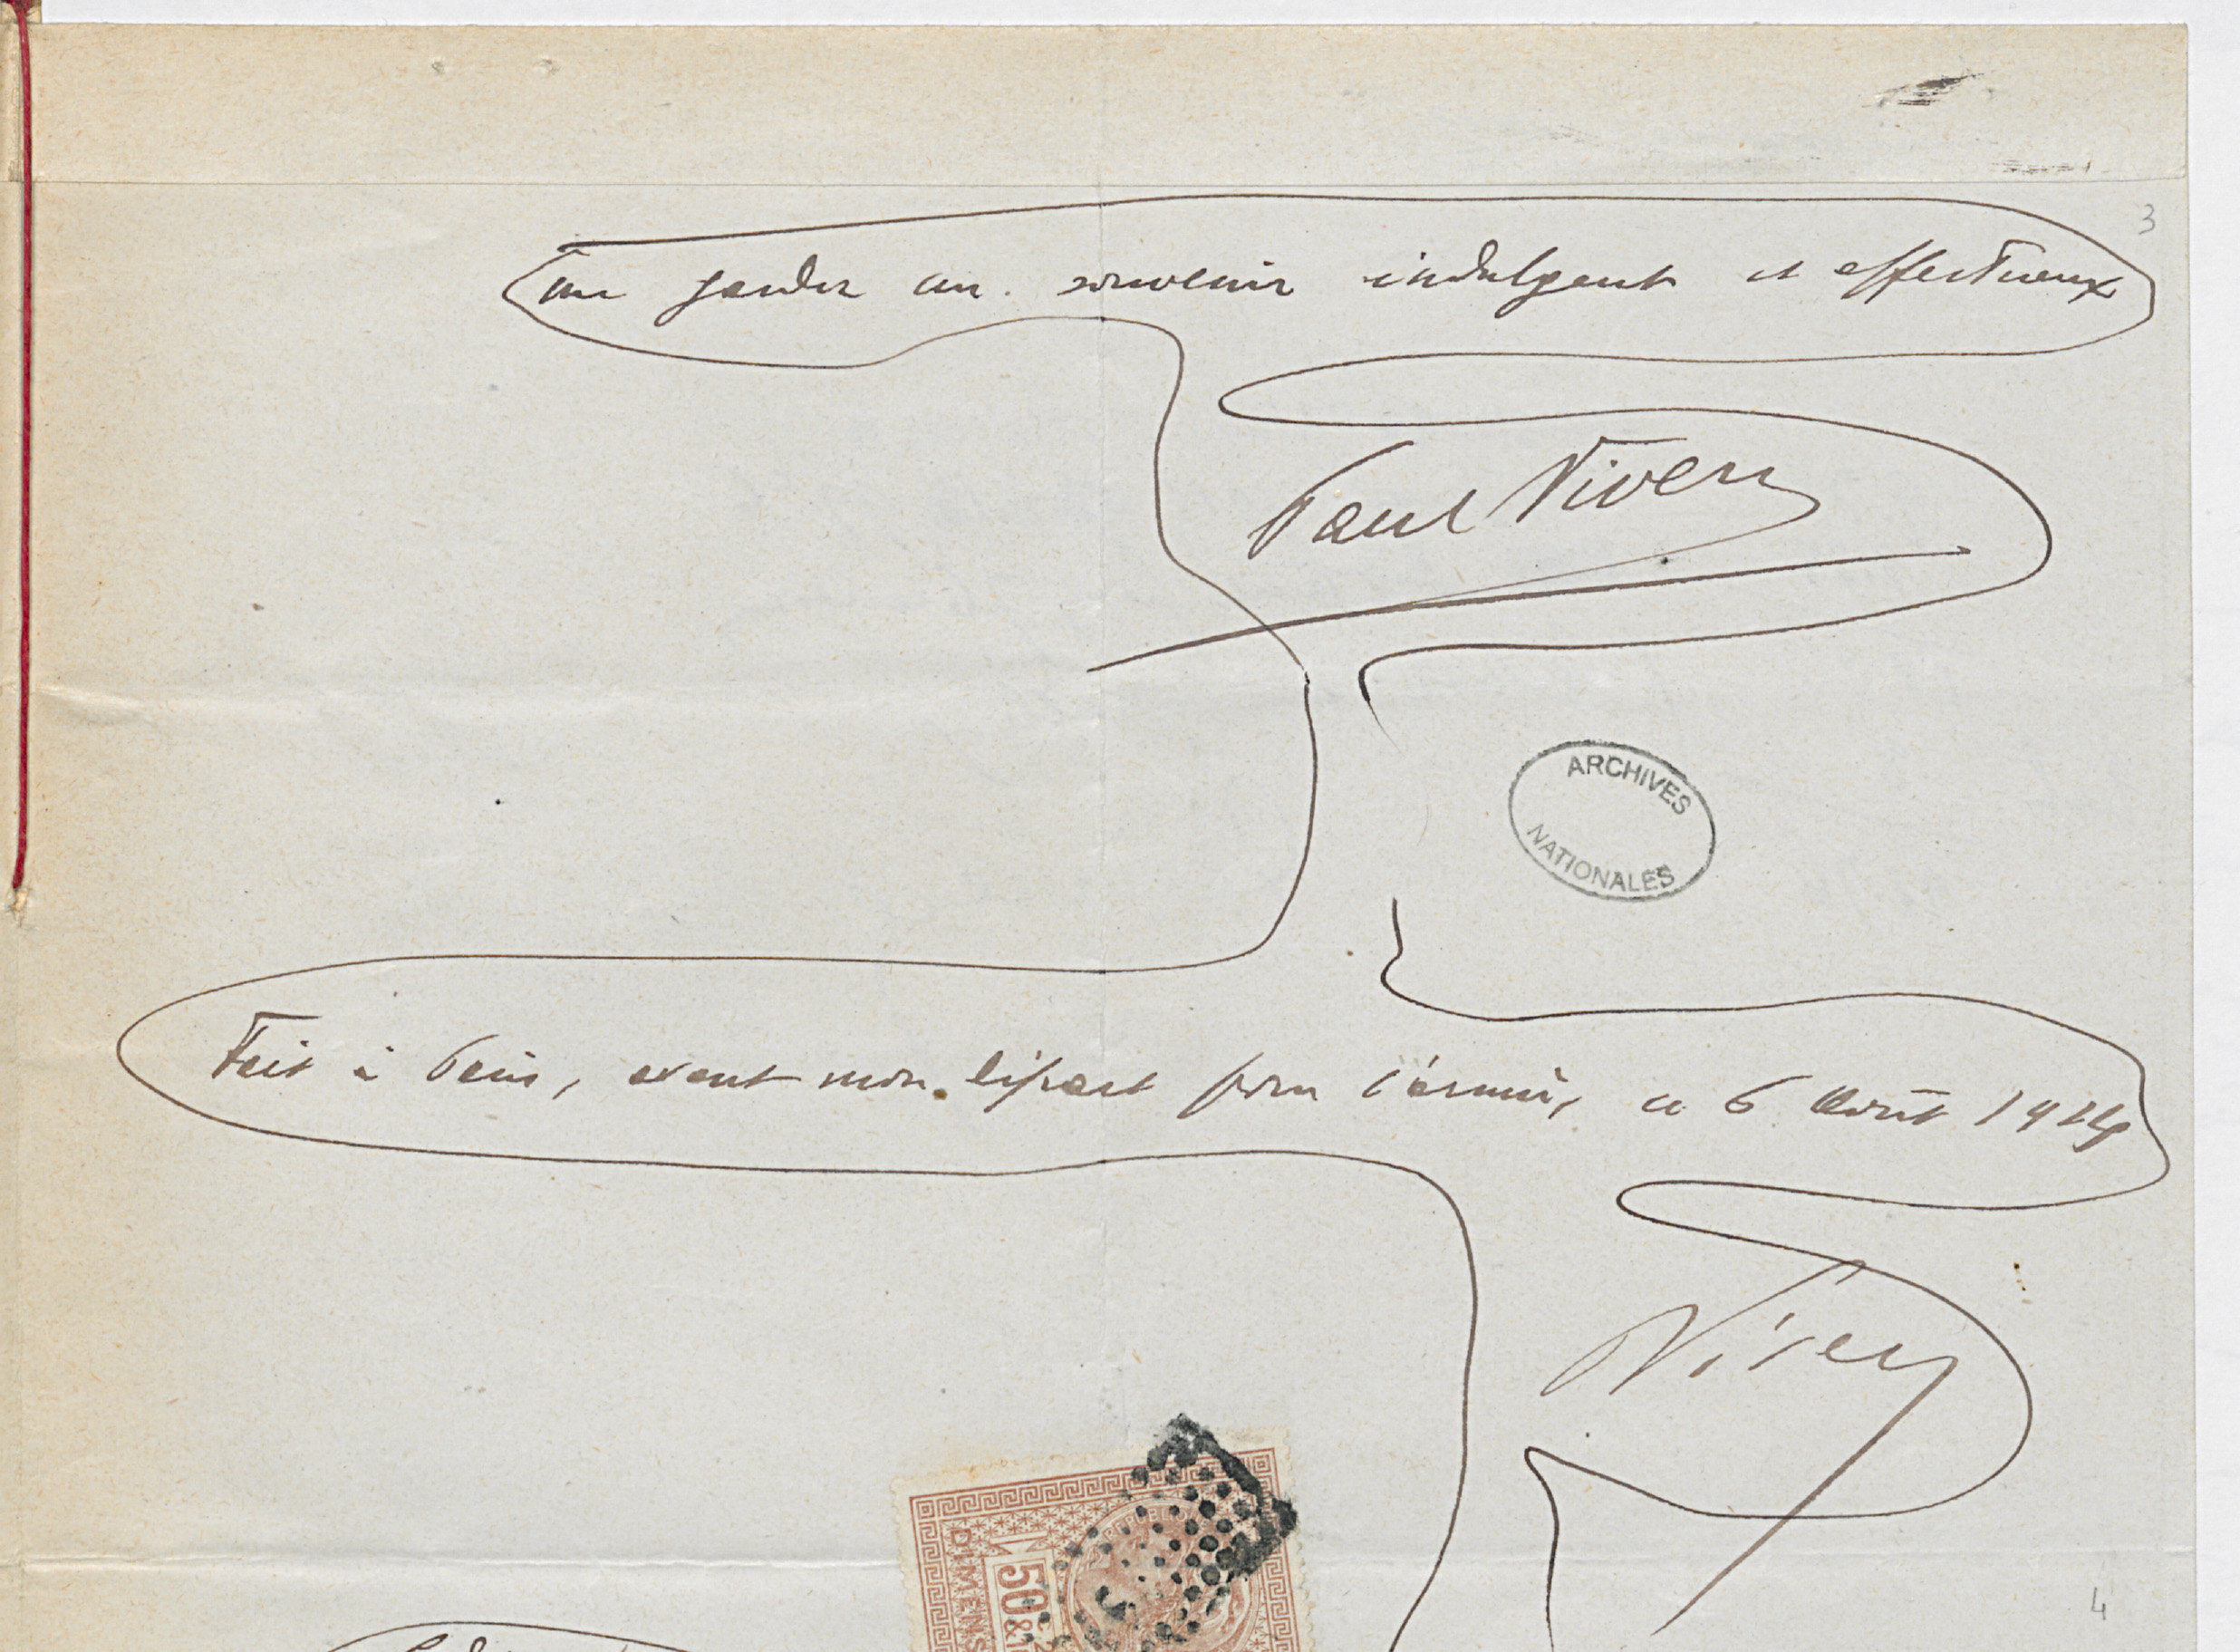 3
me garder un souvenir indulgent et affectueux
Paul Vivien
ARCHIVES
NATIONALES
Fait à Paris, avant mon départ pour l'armée, ce 6 Août 1914
4
DIMENS
50c